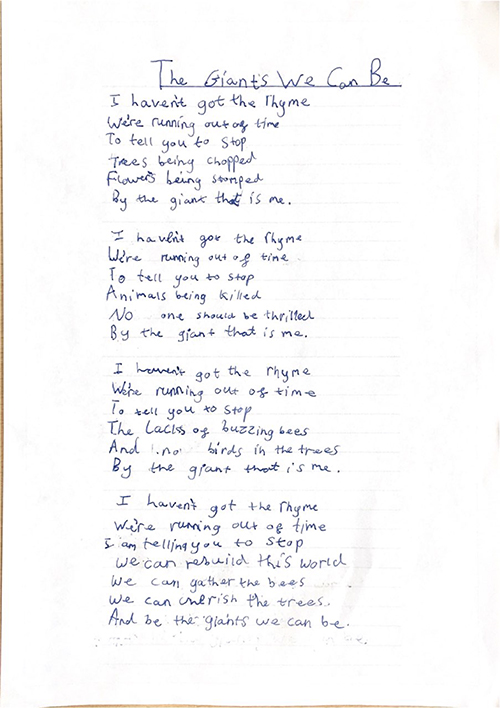 The Giants We Can Be
I haven't got the rhyme
We're running out of time
To tell you to stop
Trees being chopped
Flowers being stomped
By the giant that is me.
I haven't got the rhyme
We're running out of time
To tell you to stop
Animals being killed
No one should be thrilled
By the giant that is me.
I haven't got the rhyme
We're running out of time
To tell you to stop
The Lacks of buzzing bees
And no birds in the trees
By the giant that is me.
I haven't got the rhyme
We're running out of time
I am telling you to stop
We can rebuild this world
We can gather the bees
We can cherish the trees.
And be the giants we can be.